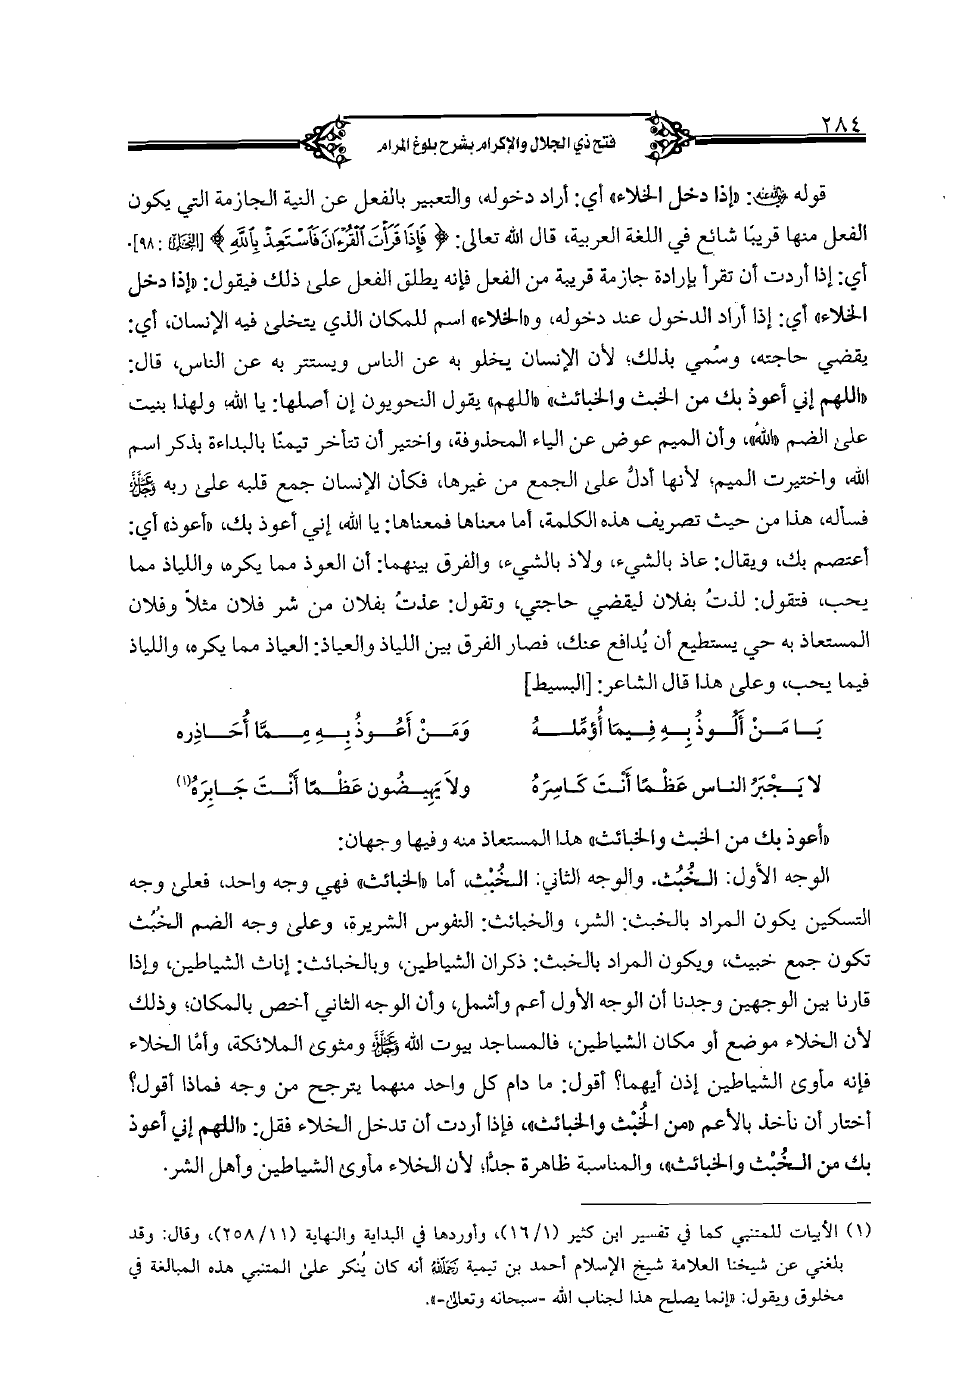 ٢٨٤
فتح ذي الجلال والإكرام بشرح بلوغ المرام
قوله رضي الله عنه: «إذا دخل الخلاء» أي: أراد دخوله، والتعبير بالفعل عن النية الجازمة التي يكون
الفعل منها قريبًا شائع في اللغة العربية، قال الله تعالى: ﴿ فَإِذَا قَرَأْتَ ٱلْقُرْءَانَ فَٱسْتَعِذْ بِٱللَّهِ ﴾ [النحل: ٩٨].
أي: إذا أردت أن تقرأ بإرادة جازمة قريبة من الفعل فإنه يطلق الفعل على ذلك فيقول: «إذا دخل
الخلاء» أي: إذا أراد الدخول عند دخوله، و«الخلاء» اسم للمكان الذي يتخلى فيه الإنسان، أي:
يقضي حاجته، وسُمي بذلك؛ لأن الإنسان يخلو به عن الناس ويستتر به عن الناس، قال:
«اللهم إني أعوذ بك من الخبث والخبائث» «اللهم» يقول النحويون إن أصلها: يا الله؛ ولهذا بنيت
على الضم «اللهُ»، وأن الميم عوض عن الياء المحذوفة، واختير أن تتأخر تيمنًا بالبداءة بذكر اسم
الله، واختيرت الميم؛ لأنها أدلُّ على الجمع من غيرها، فكأن الإنسان جمع قلبه على ربه عز وجل
فسأله، هذا من حيث تصريف هذه الكلمة، أما معناها فمعناها: يا الله، إني أعوذ بك، «أعوذ» أي:
أعتصم بك، ويقال: عاذ بالشيء، ولاذ بالشيء، والفرق بينهما: أن العوذ مما يكره، واللياذ مما
يحب، فتقول: لذتُ بفلان ليقضي حاجتي، وتقول: عذتُ بفلان من شر فلان مثلاً وفلان
المستعاذ به حي يستطيع أن يُدافع عنك، فصار الفرق بين اللياذ والعياذ: العياذ مما يكره، واللياذ
فيما يحب، وعلى هذا قال الشاعر: [البسيط]
يَا مَنْ أَلُوذُ بِهِ فِيمَا أُؤمِّلهُ وَمَنْ أَعُوذُ بِهِ مِمَّا أُحَاذِره
لا يَجْبَرُ الناس عَظْمًا أَنْتَ كَاسِرَهُ ولاَ يَهِيضُون عَظْمًا أَنْتَ جَابِرَهُ(١)
«أعوذ بك من الخبث والخبائث» هذا المستعاذ منه وفيها وجهان:
الوجه الأول: الخُبُث. والوجه الثاني: الخُبْث، أما «الخبائث» فهي وجه واحد، فعلى وجه
التسكين يكون المراد بالخبث: الشر، والخبائث: النفوس الشريرة، وعلى وجه الضم الخبُث
تكون جمع خبيث، ويكون المراد بالخبث: ذكران الشياطين، وبالخبائث: إناث الشياطين، وإذا
قارنا بين الوجهين وجدنا أن الوجه الأول أعم وأشمل، وأن الوجه الثاني أخص بالمكان؛ وذلك
لأن الخلاء موضع أو مكان الشياطين، فالمساجد بيوت الله عز وجل ومثوى الملائكة، وأمَّا الخلاء
فإنه مأوى الشياطين إذن أيهما؟ أقول: ما دام كل واحد منهما يترجح من وجه فماذا أقول؟
أختار أن نأخذ بالأعم «من الخُبْث والخبائث»، فإذا أردت أن تدخل الخلاء فقل: «اللهم إني أعوذ
بك من الخُبْث والخبائث»، والمناسبة ظاهرة جدًّا؛ لأن الخلاء مأوى الشياطين وأهل الشر.
(١) الأبيات للمتنبي كما في تفسير ابن كثير (١٦/١)، وأوردها في البداية والنهاية (٢٥٨/١١)، وقال: وقد
بلغني عن شيخنا العلامة شيخ الإسلام أحمد بن تيمية رحمه الله أنه كان يُنكر على المتنبي هذه المبالغة في
مخلوق ويقول: «إنما يصلح هذا لجناب الله -سبحانه وتعالى-».